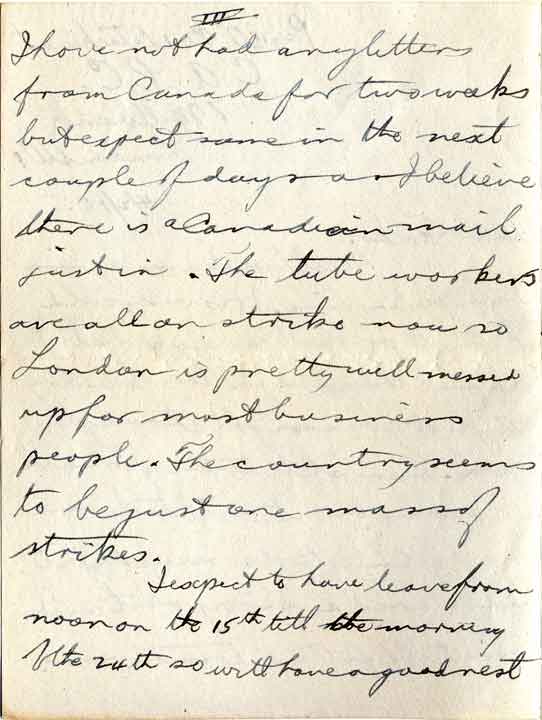 III
I have not had any letters
from Canada for two weeks
but expect some in the next
couple of days as I believe
there is a Canadian mail
just in. The tube workers
are all on strike now so
London is pretty well messed
up for most business
people. The country seems
to be just one mass of
strikes.
I expect to have leave from
noon on the 15th till the morning
of the 24th so will have a good rest